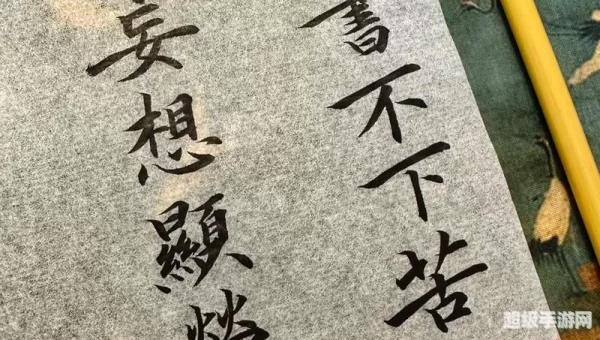 書不下苦
妄想顯榮
超级手游网